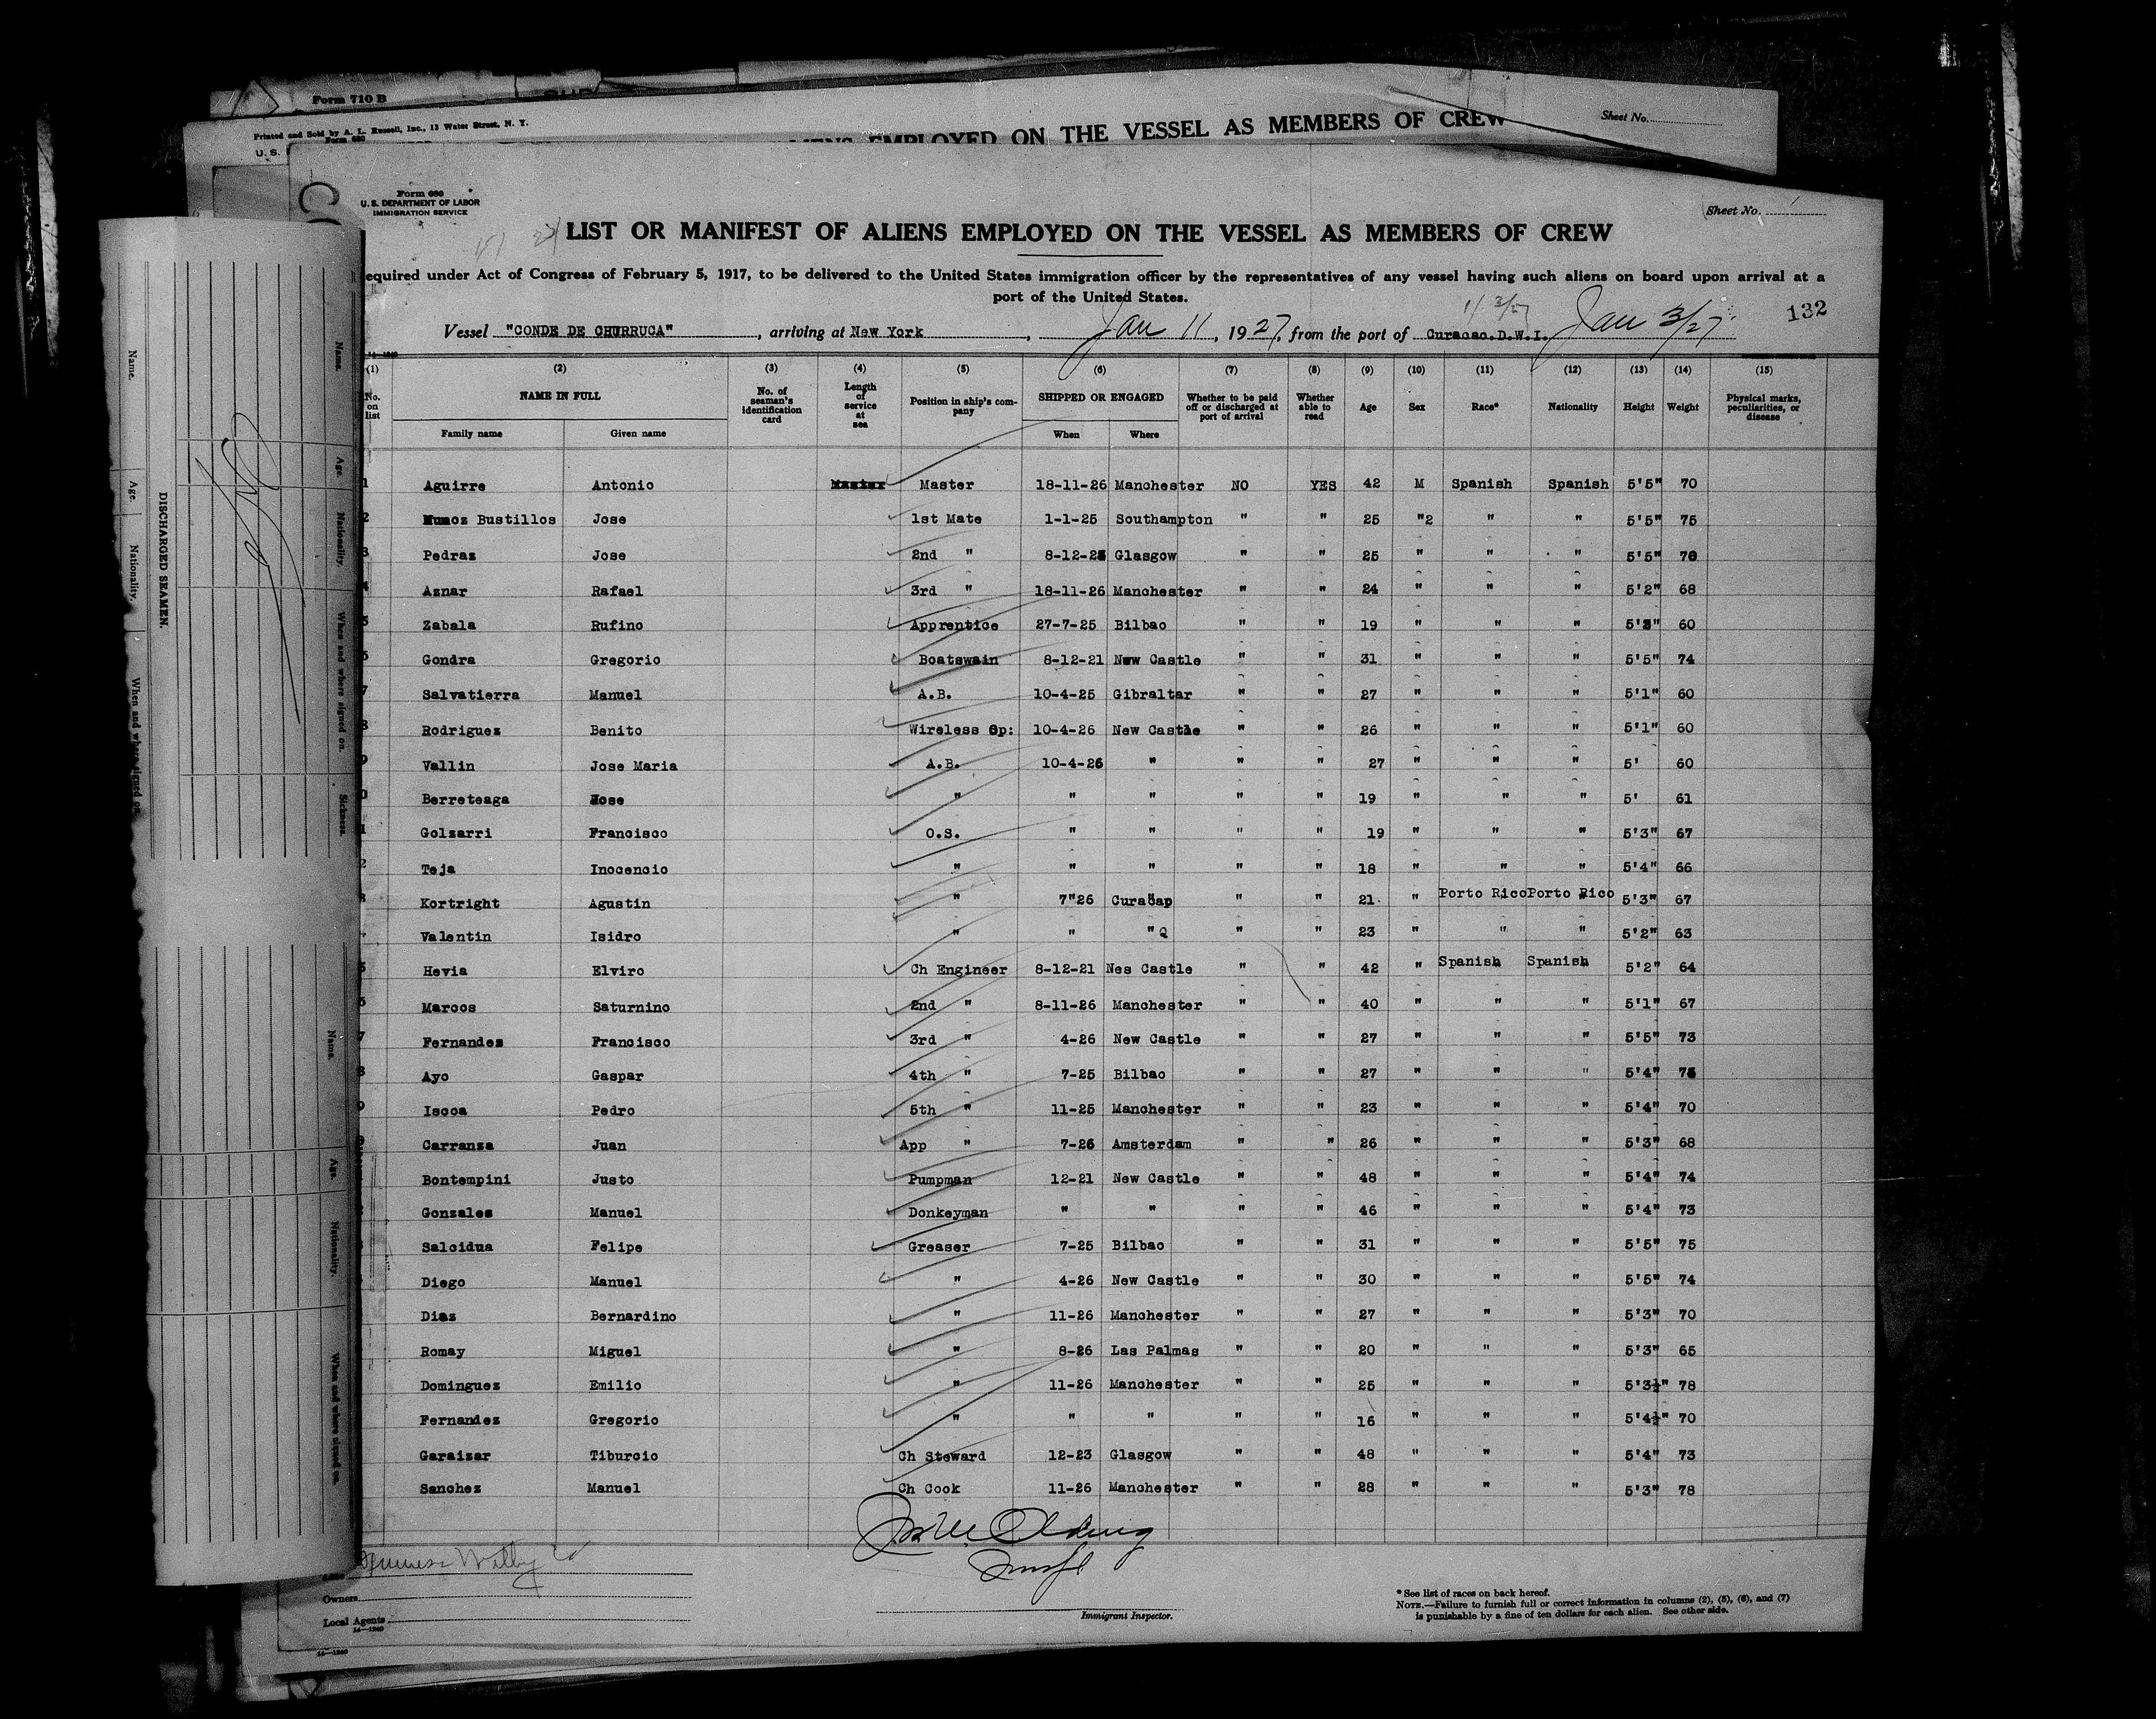 Form 710 B
Printed and Sold by A. L. Russell, Inc., 13 Water Street, N. Y.
Form 680
U. S.
EMPLOYED ON THE VESSEL AS MEMBERS OF CREW
Sheet No.
Form 680
U. S. DEPARTMENT OF LABOR
IMMIGRATION SERVICE
Sheet No. 1
LIST OR MANIFEST OF ALIENS EMPLOYED ON THE VESSEL AS MEMBERS OF CREW
equired under Act of Congress of February 5, 1917, to be delivered to the United States immigration officer by the representatives of any vessel having such aliens on board upon arrival at a
port of the United States.
132
Vessel "CONDE DE CHURRUCA", arriving at New York, Jan 11, 1927, from the port of Curacao.D.W.I. Jan 3/27
14-1240
(1) (2) (3) (4) (5) (6) (7) (8) (9) (10) (11) (12) (13) (14) (15)
No. on list NAME IN FULL No. of seaman's identification card Length of service at sea Position in ship's company SHIPPED OR ENGAGED Whether to be paid off or discharged at port of arrival Whether able to read Age Sex Race* Nationality Height Weight Physical marks, peculiarities, or disease
Family name Given name When Where
1 Aguirre Antonio Master 18-11-26 Manchester NO YES 42 M Spanish Spanish 5'5" 70
2 Munoz Bustillos Jose 1st Mate 1-1-25 Southampton " " 25 "2 " " 5'5" 75
3 Pedraz Jose 2nd " 8-12-25 Glasgow " " 25 " " " 5'5" 70
4 Aznar Rafael 3rd " 18-11-26 Manchester " " 24 " " " 5'2" 68
5 Zabala Rufino Apprentice 27-7-25 Bilbao " " 19 " " " 5'3" 60
6 Gondra Gregorio Boatswain 8-12-21 New Castle " " 31 " " " 5'5" 74
7 Salvatierra Manuel A.B. 10-4-25 Gibraltar " " 27 " " " 5'1" 60
8 Rodriguez Benito Wireless Op: 10-4-26 New Castle " " 26 " " " 5'1" 60
9 Vallin Jose Maria A.B. 10-4-26 " " " 27 " " " 5' 60
0 Berreteaga Jose " " " " " 19 " " " 5' 61
1 Golzarri Francisco O.S. " " " " 19 " " " 5'3" 67
2 Teja Inocencio " " " " " 18 " " " 5'4" 66
3 Kortright Agustin " 7"26 Curacap " " 21 " Porto Rico Porto Rico 5'3" 67
Valentin Isidro " " " " " 23 " " " 5'2" 63
5 Hevia Elviro Ch Engineer 8-12-21 Nes Castle " " 42 " Spanish Spanish 5'2" 64
6 Marcos Saturnino 2nd " 8-11-26 Manchester " " 40 " " " 5'1" 67
7 Fernandez Francisco 3rd " 4-26 New Castle " " 27 " " " 5'5" 73
8 Ayo Gaspar 4th " 7-25 Bilbao " " 27 " " " 5'4" 75
9 Iscoa Pedro 5th " 11-25 Manchester " " 23 " " " 5'4" 70
Carranza Juan App " 7-26 Amsterdam " " 26 " " " 5'3" 68
Bontempini Justo Pumpman 12-21 New Castle " " 48 " " " 5'4" 74
Gonzales Manuel Donkeyman " " " " 46 " " " 5'4" 73
Salcidua Felipe Greaser 7-25 Bilbao " " 31 " " " 5'5" 75
Diego Manuel " 4-26 New Castle " " 30 " " " 5'5" 74
Diaz Bernardino " 11-26 Manchester " " 27 " " " 5'3" 70
Romay Miguel " 8-26 Las Palmas " " 20 " " " 5'3" 65
Dominguez Emilio " 11-26 Manchester " " 25 " " " 5'3½" 78
Fernandez Gregorio " " " " " 16 " " " 5'4½" 70
Garaizar Tiburcio Ch Steward 12-23 Glasgow " " 48 " " " 5'4" 73
Sanchez Manuel Ch Cook 11-26 Manchester " " 28 " " " 5'3" 78
Owners
Local Agents
14-1240
Immigrant Inspector.
* See list of races on back hereof.
NOTE.—Failure to furnish full or correct information in columns (2), (5), (6), and (7)
is punishable by a fine of ten dollars for each alien. See other side.
14-1240
DISCHARGED SEAMEN.
Name. Age. Nationality. When and where signed on.
Name. Age. Nationality. When and where signed on. Sickness.
Name. Age. Nationality. When and where signed on.